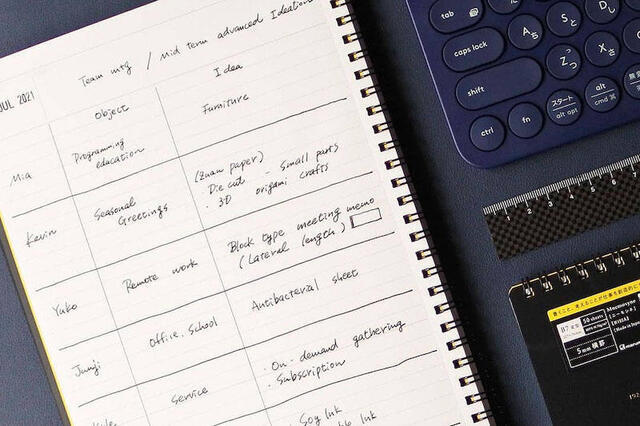 JUL 2021
Team mtg / Mid term advanced Ideation
Object
Idea
Mia
Programming education
Furniture
Kevin
Seasonal Greetings
(Zuan paper)
・Die cut - Small parts
・3D origami crafts
Yuko
Remote work
Block type meeting memo
(Lateral length)
Junji
Office, School
Antibacterial sheet
Service
・On-demand gathering
・Subscription
Soy Ink
Ink
tab
caps lock
shift
ctrl
fn
あ ち
さ Z
つ
スタート
alt opt
alt
cmd ⌘
S と
D し
X さ
1 2 3 4 5 6 7
Mnemosyne
B7 変型
50 sheets
5mm 横罫